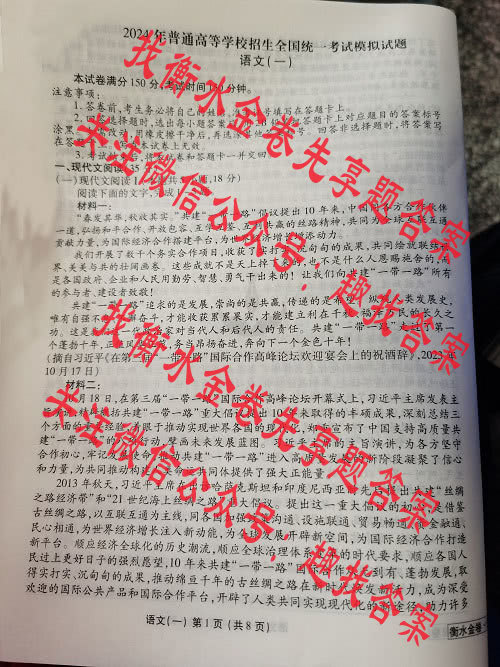 2024年普通高等学校招生全国统一考试模拟试题
语文(一)
本试卷满分150分,考试时间150分钟。
注意事项:
1.答卷前,考生务必将自己的姓名、
填写在答题卡上。
2.回答选择题时,选出每小题答案
答题卡上对应题目的答案标号
涂黑。
改动,用橡皮擦干净后,再选涂其他
回答非选择题时,将答案写
在答题
本试卷上无效。
3.考试结束后,将本试卷和答题卡一并交回。
一、现代文阅读(35
(一)现代文阅读Ⅰ
18分)
阅读下面的文字,完成
材料一:
“春发其华,秋收其实。”共建“一带一路”倡议提出10年来,中国同各方合作伙伴
一道,弘扬和平合作、开放包容、互学互鉴、互利共赢的丝路精神,共同为全球互联互通
贡献力量,为国际经济合作搭建平台,为世界经济增长增添动力。
我们开展了数千个务实合作项目,收获了实打实、沉甸甸的成果,共同绘就联接世
界、美美与共的壮阔画卷。这些成就不是天上掉下来的,也不是什么人恩赐施舍的,而
是各国政府、企业和人民用勤劳、智慧、勇气干出来的!让我们向共建“一带一路”所有
的参与者、建设者致敬!
共建“一带一路”追求的是发展,崇尚的是共赢,传递的是希望。纵观人类发展史,
唯有自强不
奋斗,才能收获累累硕实,才能建立利在千秋、福泽万民的长久之
功。这是
一代政治家对当代人和后代人的责任。共建“一带一路”走过了第一
个蓬勃十年,正
务当昂扬奋进,奔向下一个金色十年!
(摘自习近平《在第三届“一带一路”国际合作高峰论坛欢迎宴会上的祝酒辞》,2023年
10月17日)
材料二:
10月18日,在第三届“一带一路”国际合作高峰论坛开幕式上,习近平主席发表主
旨演讲,
括共建“一带一路”重大倡议提出10年来取得的丰硕成果,深刻总结三
个方面的重要经验,着眼于推动实现世界各国的现代化,
宣布了中国支持高质量共
建“一带一路”的
行动,擘画未来发展蓝图。习近平主席的主旨演讲,为各方坚守
合作初心,牢记发展使命,推动共建“一带一路”进入高质量发展的新阶段凝聚了信心
和力量,为共同推动构建人类命运共同体提供了强大正能量。
2013年秋天,习近平主席在哈萨克斯坦和印度尼西亚先后提出共建“丝绸
之路经济带”和“21世纪海上丝绸之路”重大倡议。提出这一重大倡议的初心,是借鉴
古丝绸之路,以互联互通为主线,同各国加强政策沟通、设施联通、贸易畅通、资金融通、
民心相通,为世界经济增长注入新动能,为全球发展开辟新空间,为国际经济合作打造
新平台。顺应经济全球化的历史潮流,顺应全球治理体系变革的时代要求,顺应各国人
民过上更好日子的强烈愿望,10年来共建“一带一路”国际合作从无到有、蓬勃发展,取
得实打实、沉甸甸的成果,推动绵亘千年的古丝绸之路在新时代焕发新活力,成为深受
欢迎的国际公共产品和国际合作平台,开辟了人类共同实现现代化的新途径,助力许多
语文(一) 第1页(共8页)
衡水金卷
找衡水金卷先享题答案
关注微信公众号:趣找答案
找衡水金卷先享题答案
关注微信公众号:趣找答案